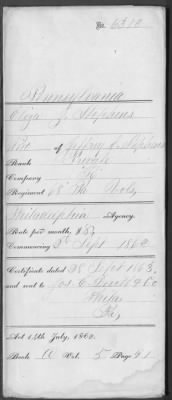 No. 6310
Pennsylvania
Eliza J. Stephens
Wid of Jeffrey J. Stephens
Rank Private
Company K
Regiment 68 Pa Vols
Philadelphia Agency.
Rate per month, $8
Commencing 2d Sept 1862
Certificate dated 28 Sept 1863,
and sent to Jos. E. Devitt & Co
Phila
Pa,
Act 14th July, 1862.
Book A Vol. 5 Page 91